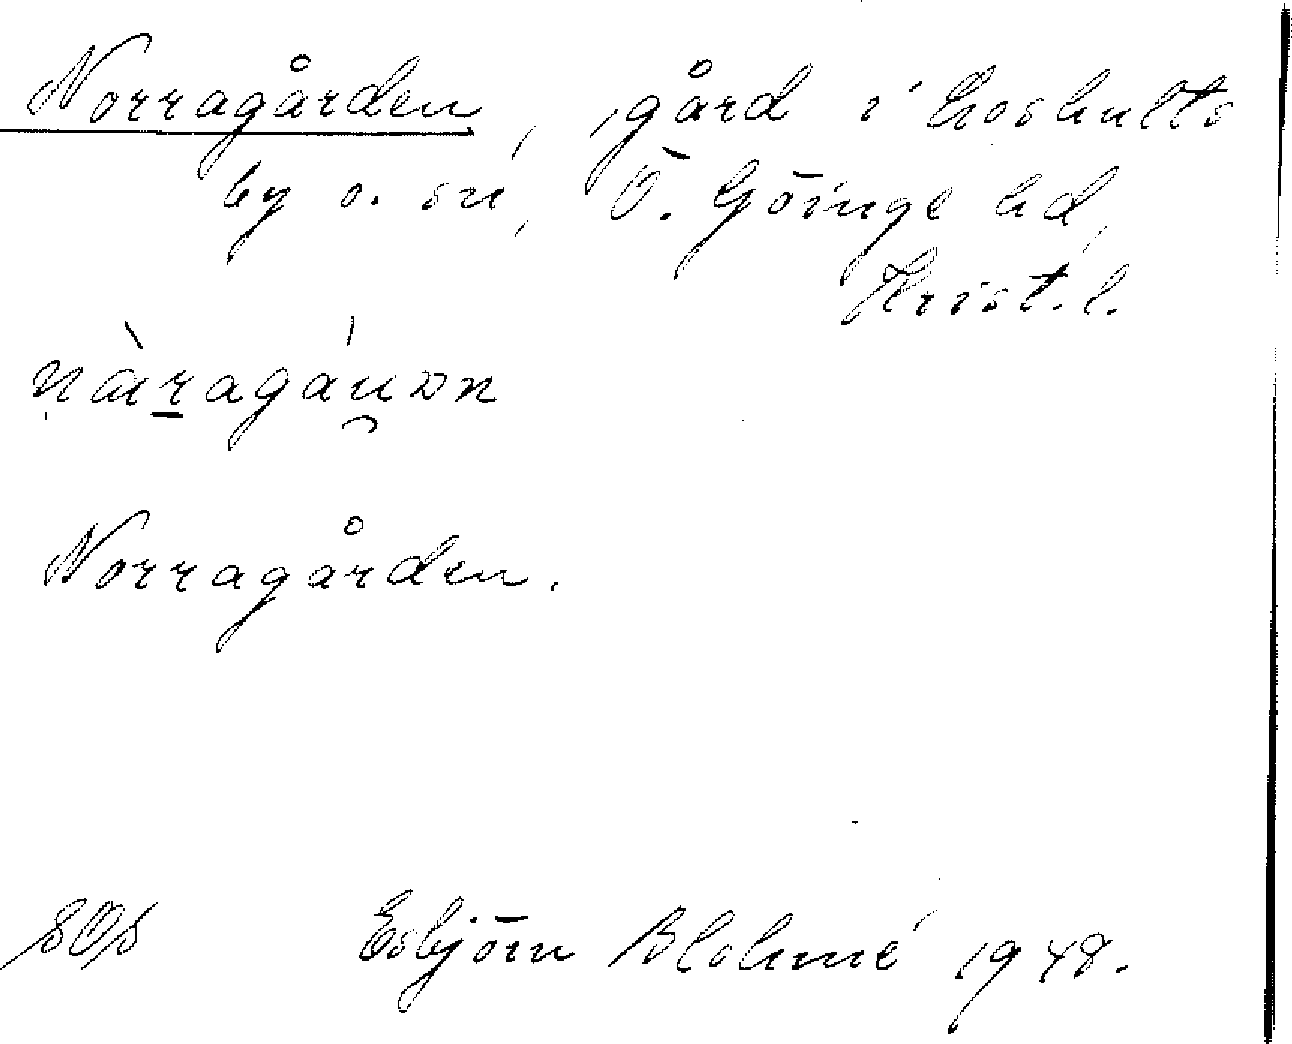 Norragården, gård i Loshults
by o. sn, Ö. Göinge hd,
Krist. l.
Norragården.
SOS Esbjörn Blohmé 1948.